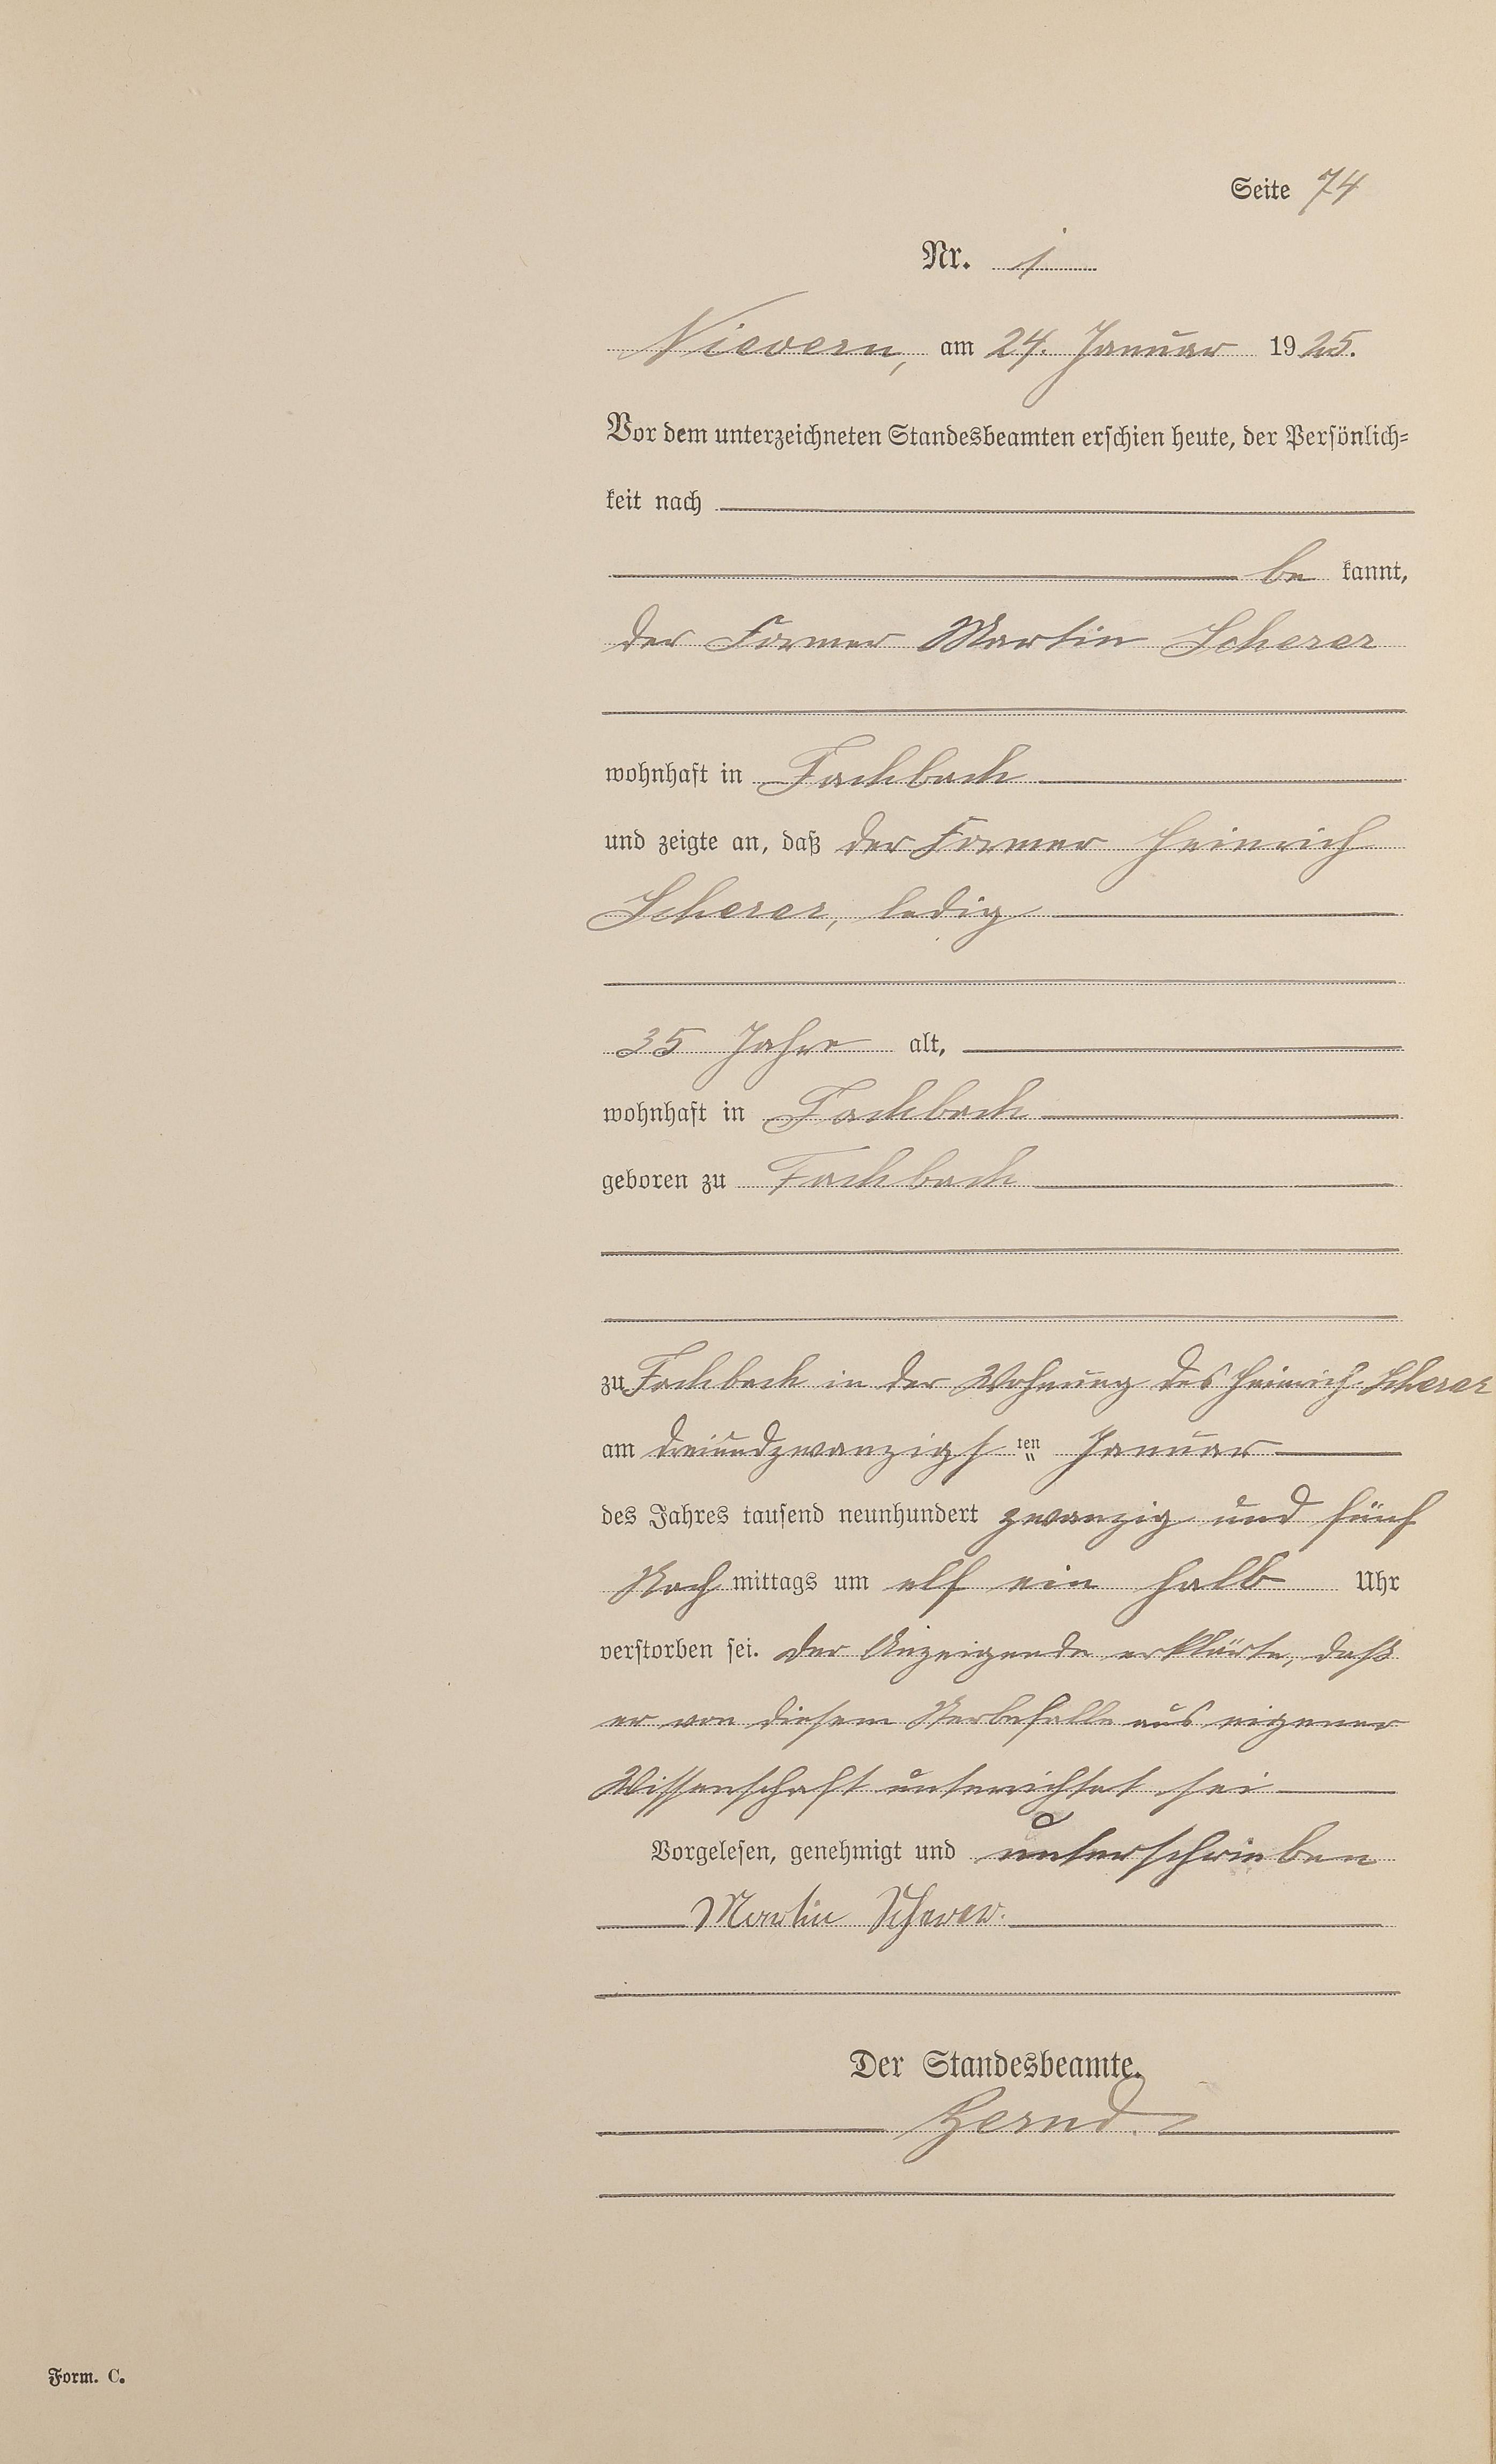 Seite 74
Nr. 1
Nievern, am 24. Januar 1925.
Vor dem unterzeichneten Standesbeamten erschien heute, der Persönlich=
keit nach
be kannt,
der Former Martin Scherer
wohnhaft in Fachbach
und zeigte an, daß der Former Heinrich
Scherer, ledig
35 Jahre alt,
wohnhaft in Fachbach
geboren zu Fachbach
zu Fachbach in der Wohnung des Heinrich Scherer
am dreiundzwanzigsten Januar
des Jahres tausend neunhundert zwanzig und fünf
Nach mittags um elf ein halb Uhr
verstorben sei. Der Anzeigende erklärte, daß
er von diesem Sterbefalle aus eigener
Wissenschaft unterrichtet sei
Vorgelesen, genehmigt und unterschrieben
Martin Scherer.
Der Standesbeamte.
Form. C.